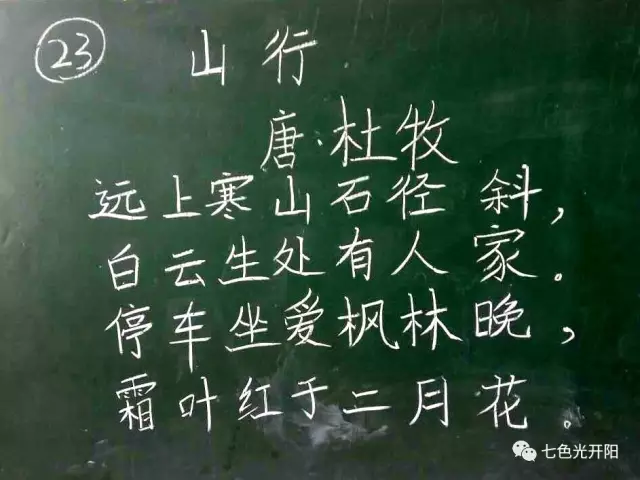 23 山行
唐·杜牧
远上寒山石径斜,
白云生处有人家。
停车坐爱枫林晚,
霜叶红于二月花。
七色光开阳